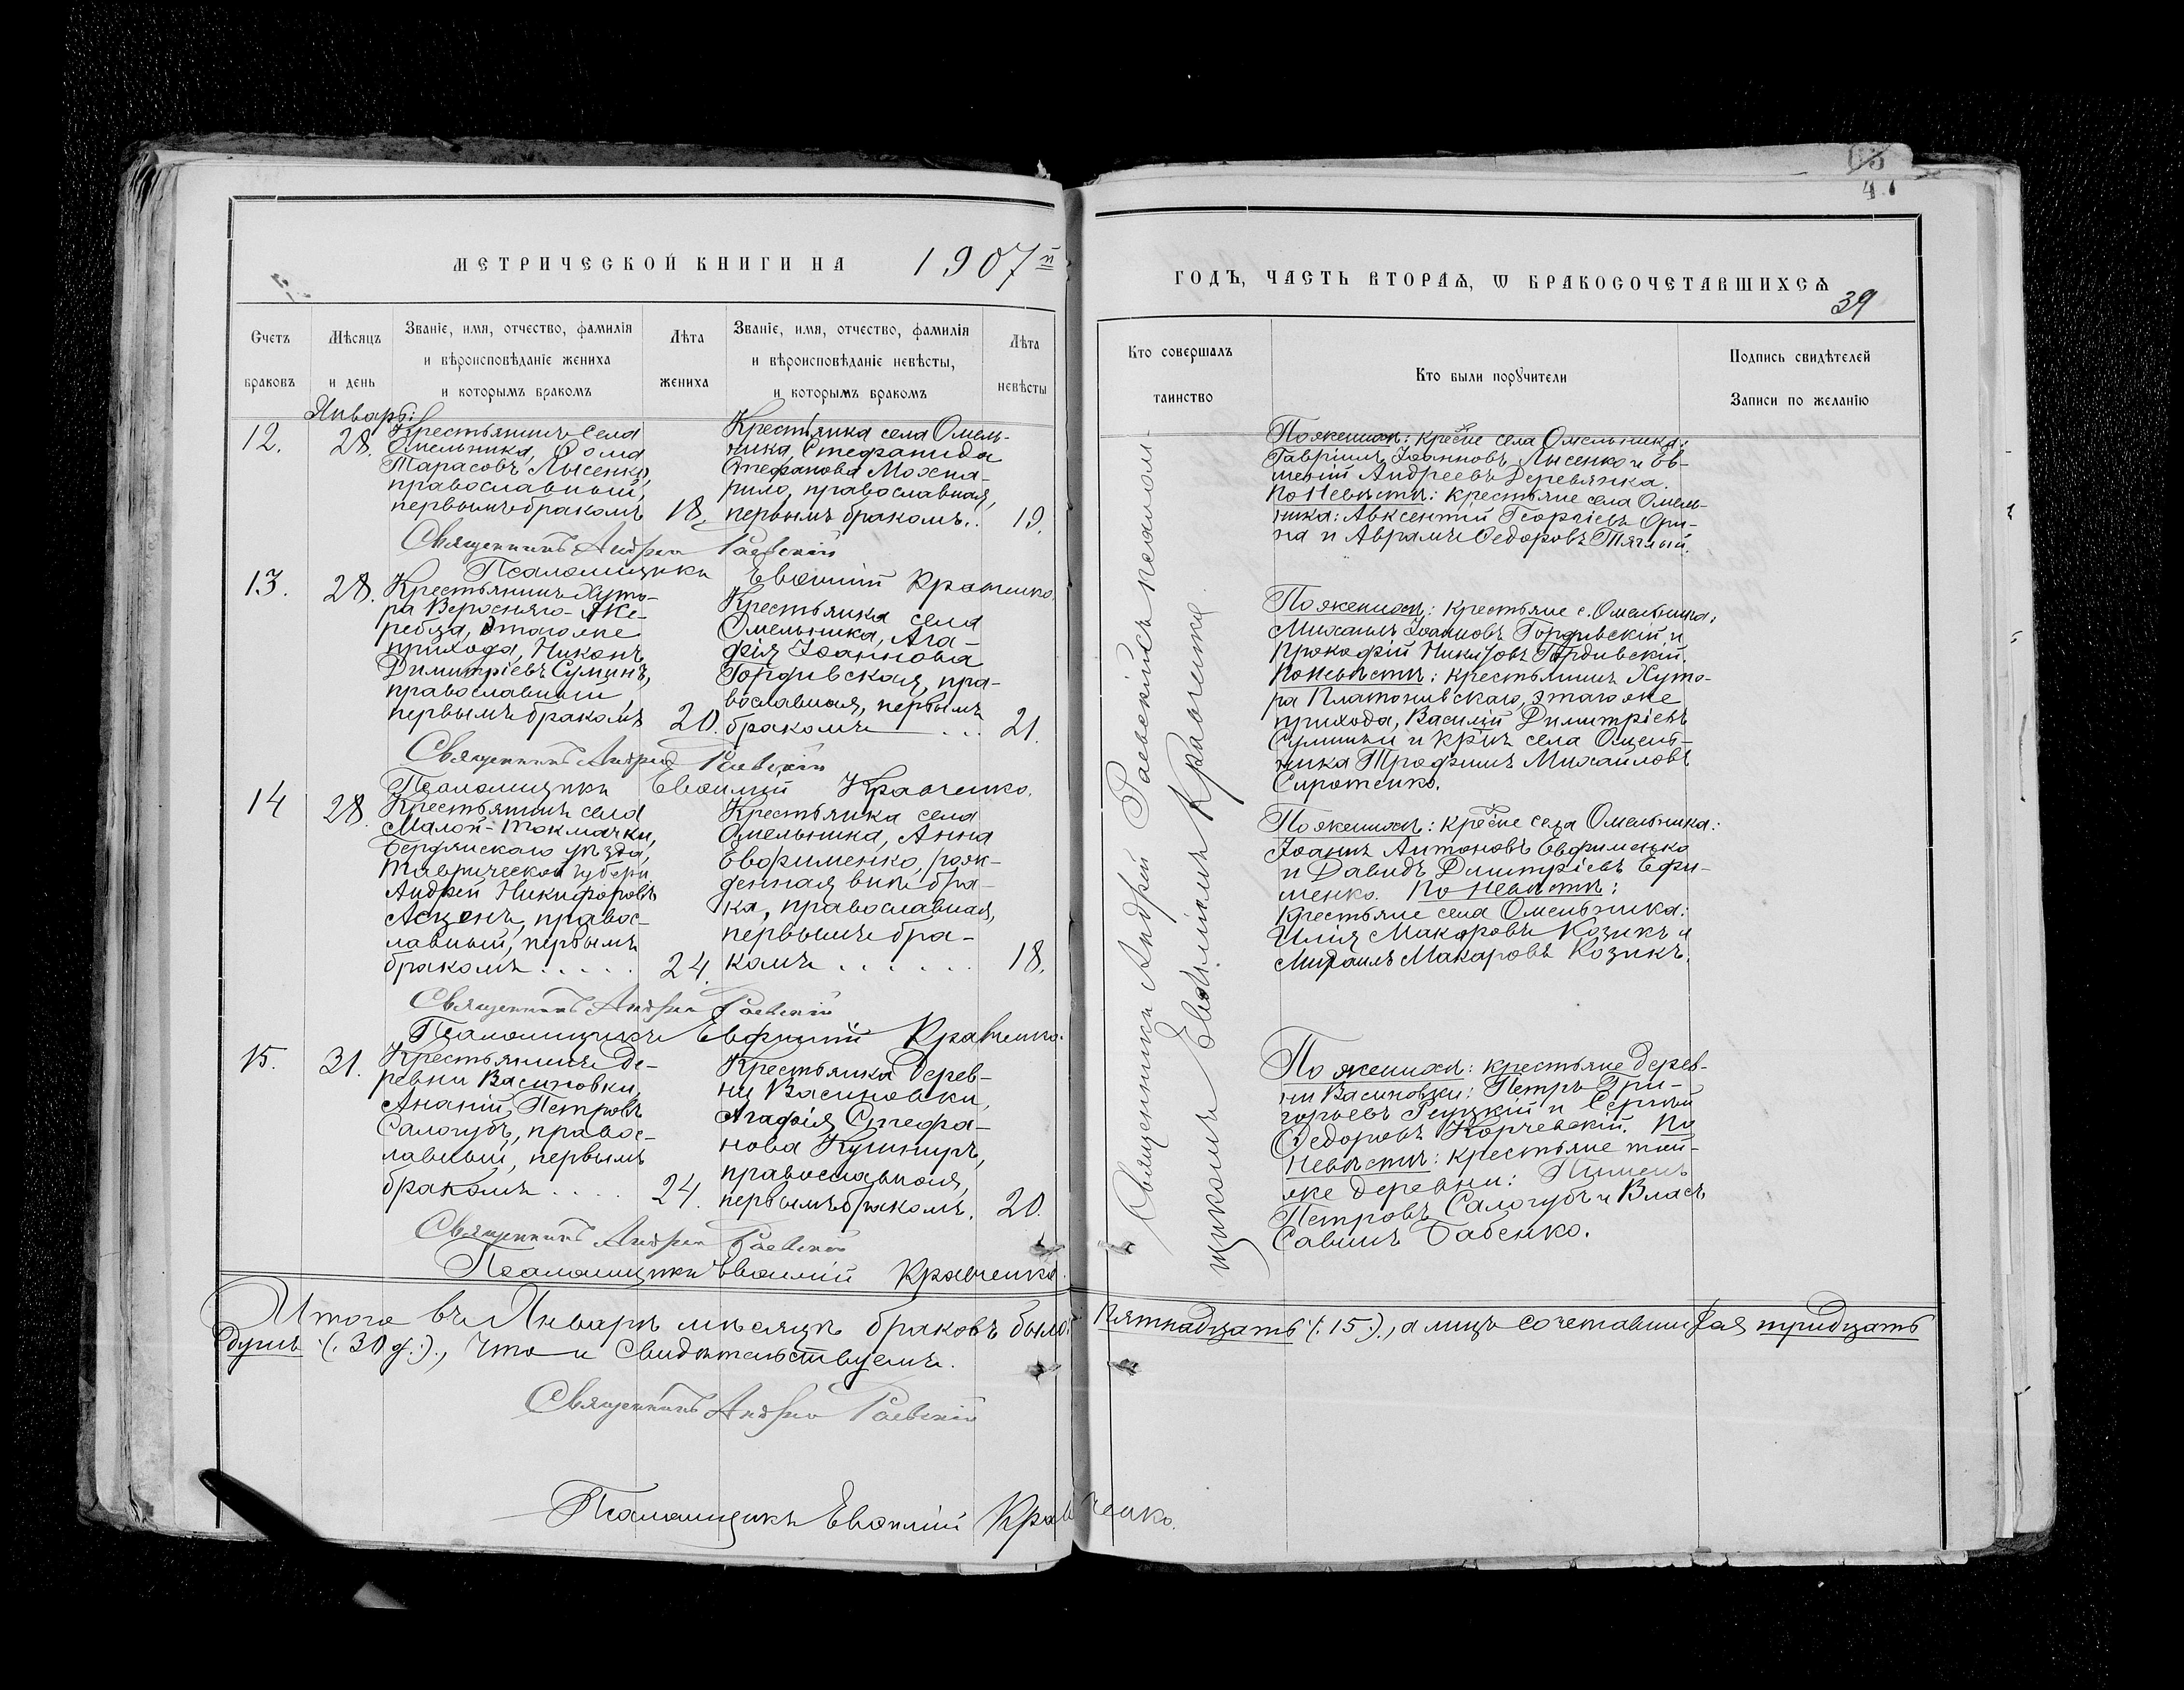 65
41
МЕТРИЧЕСКОЙ КНИГИ НА 1907й
ГОДЪ, ЧАСТЬ ВТОРАѦ, Ѡ БРАКОСОЧЕТАВШИХСѦ
39
Счетъ
браковъ
Мѣсяцъ
и день
Званіе, имя, отчество, фамилія
и вѣроисповѣданіе жениха
и которымъ бракомъ
Лѣта
жениха
Званіе, имя, отчество, фамилія
и вѣроисповѣданіе невѣсты,
и которымъ бракомъ
Лѣта
невѣсты
Кто совершалъ
таинство
Кто были порꙋчители
Подпись свидѣтелей
Записи по желанію
Январь:
12.
28.
Крестьянинъ села
Омельника, Ѳома
Тарасовъ Лысенко,
православный,
первымъ бракомъ
18.
Крестьянка села Омель-
ника, Стефанида
Стефанова Мохна-
рило, православная,
первымъ бракомъ..
19.
По женихѣ: крестне села Омельника:
Гавріилъ Іоанновъ Лысенко и Ев-
меній Андреевъ Деревянка.
По невѣстѣ: крестьяне села Омель-
ника: Авксентій Георгіевъ Ори-
на и Аврамъ Ѳедоровъ Тяглый.
Священникъ Андрей Раевскій
Псаломщикъ Евѳимій Кравченко.
13.
28.
Крестьянинъ хуто-
ра Верхняго-Же-
ребца, этого же
прихода, Никонъ
Димитріевъ Суминъ,
православный
первымъ бракомъ
20.
Крестьянка села
Омельника, Ага-
фія Іоаннова
Гордивская, пра-
вославная, первымъ
бракомъ ...
21.
По женихѣ: крестьяне с. Омельника:
Михаилъ Іоанновъ Гордивскій и
Прокофій Никитовъ Гордивскій.
По невѣстѣ: крестьянинъ Хуто-
ра Платонивскаго, этого же
прихода, Василій Димитріевъ
и крнъ села Омель-
ника Трофимъ Михайловъ
Сиротенко.
Священникъ Андрей Раевскій
Псаломщикъ Евѳимій Кравченко.
14
28.
Крестьянинъ села
Малой-Токмачки,
Бердянскаго уѣзда,
Таврической губерн
Андрей Никифоровъ
правос-
лавный, первымъ
бракомъ .....
24.
Крестьянка села
Омельника, Анна
Евфименко, рож-
денная внѣ бра-
ка, православная,
первымъ бра-
комъ ......
18.
По женихѣ: крестне села Омельника:
Іоаннъ Антоновъ Евфименко
и Давидъ Димитріевъ Ефи-
менко. По невѣстѣ:
крестьяне села Омельника:
Илія Макаровъ Козикъ и
Михаилъ Макаровъ Козикъ.
Священникъ Андрей Раевскій
Псаломщикъ Евфимій Кравченко.
15.
31.
Крестьянинъ де-
ревни Васиновки,
Ананій Петровъ
Салогубъ, правос-
лавный, первымъ
бракомъ ....
24.
Крестьянка дерев-
ни Васиновки,
Агафія Стефа-
нова Кушниръ,
православная,
первымъ бракомъ.
20.
По женихѣ: крестьяне дерев-
ни Васиновки: Петръ Гри-
горьевъ Реуцкій и Сергій
Ѳедоровъ Корчевскій. По
невѣстѣ: крестьяне той-
же деревни: Пименъ
Петровъ Салогубъ и Власъ
Савинъ Бабенко.
Священникъ Андрей Раевскій
Псаломщикъ Евѳимій Кравченко.
Священникъ Андрей Раевскій съ псалом-
щикомъ Евѳиміемъ Кравченко.
Итого въ Январѣ мѣсяцѣ браковъ было: пятнадцать (:15:), а лицъ сочетавшихся тридцать
душъ (:30 д:)., что и свидѣтельствуемъ.
Священникъ Андрей Раевскій
Псаломщикъ Евѳимій Кравченко.